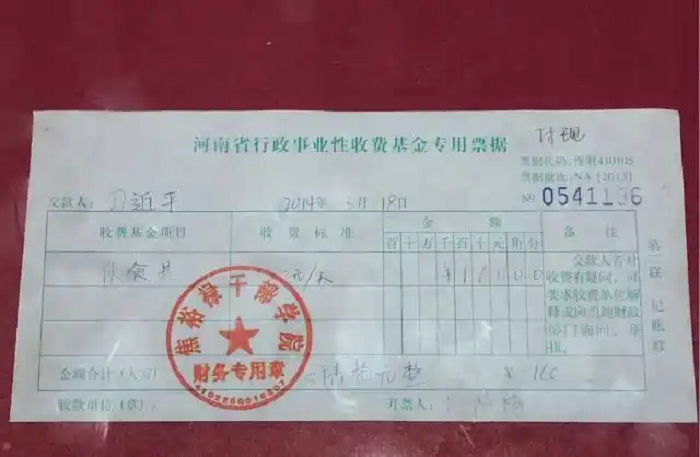 河南省行政事业性收费基金专用票据
付现
票据代码:豫财410105
票据批次:NA[2013]
№ 0541196
交款人: 习近平 2014年 3月 18日
收费基金项目 收费标准 金额 备注
百 十 万 千 百 十 元 角 分
伙食费 元/天 ¥ 1 6 0 0 0
交款人若对收费有疑问,可要求收费单位解释或向当地财政部门询问、举报。
第一联 记账联
焦裕禄干部学院
财务专用章
金额合计(大写) 陆拾元整 ¥ 160
收款单位(章): 开票人: